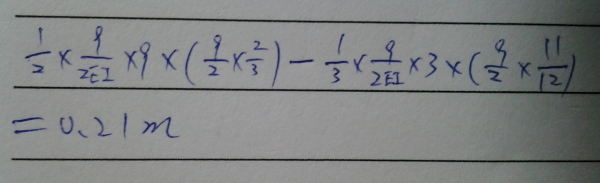 1/2 × 9/2EI × 9 × (9/2 × 2/3) − 1/3 × 9/2EI × 3 × (9/2 × 11/12)
= 0.21 m